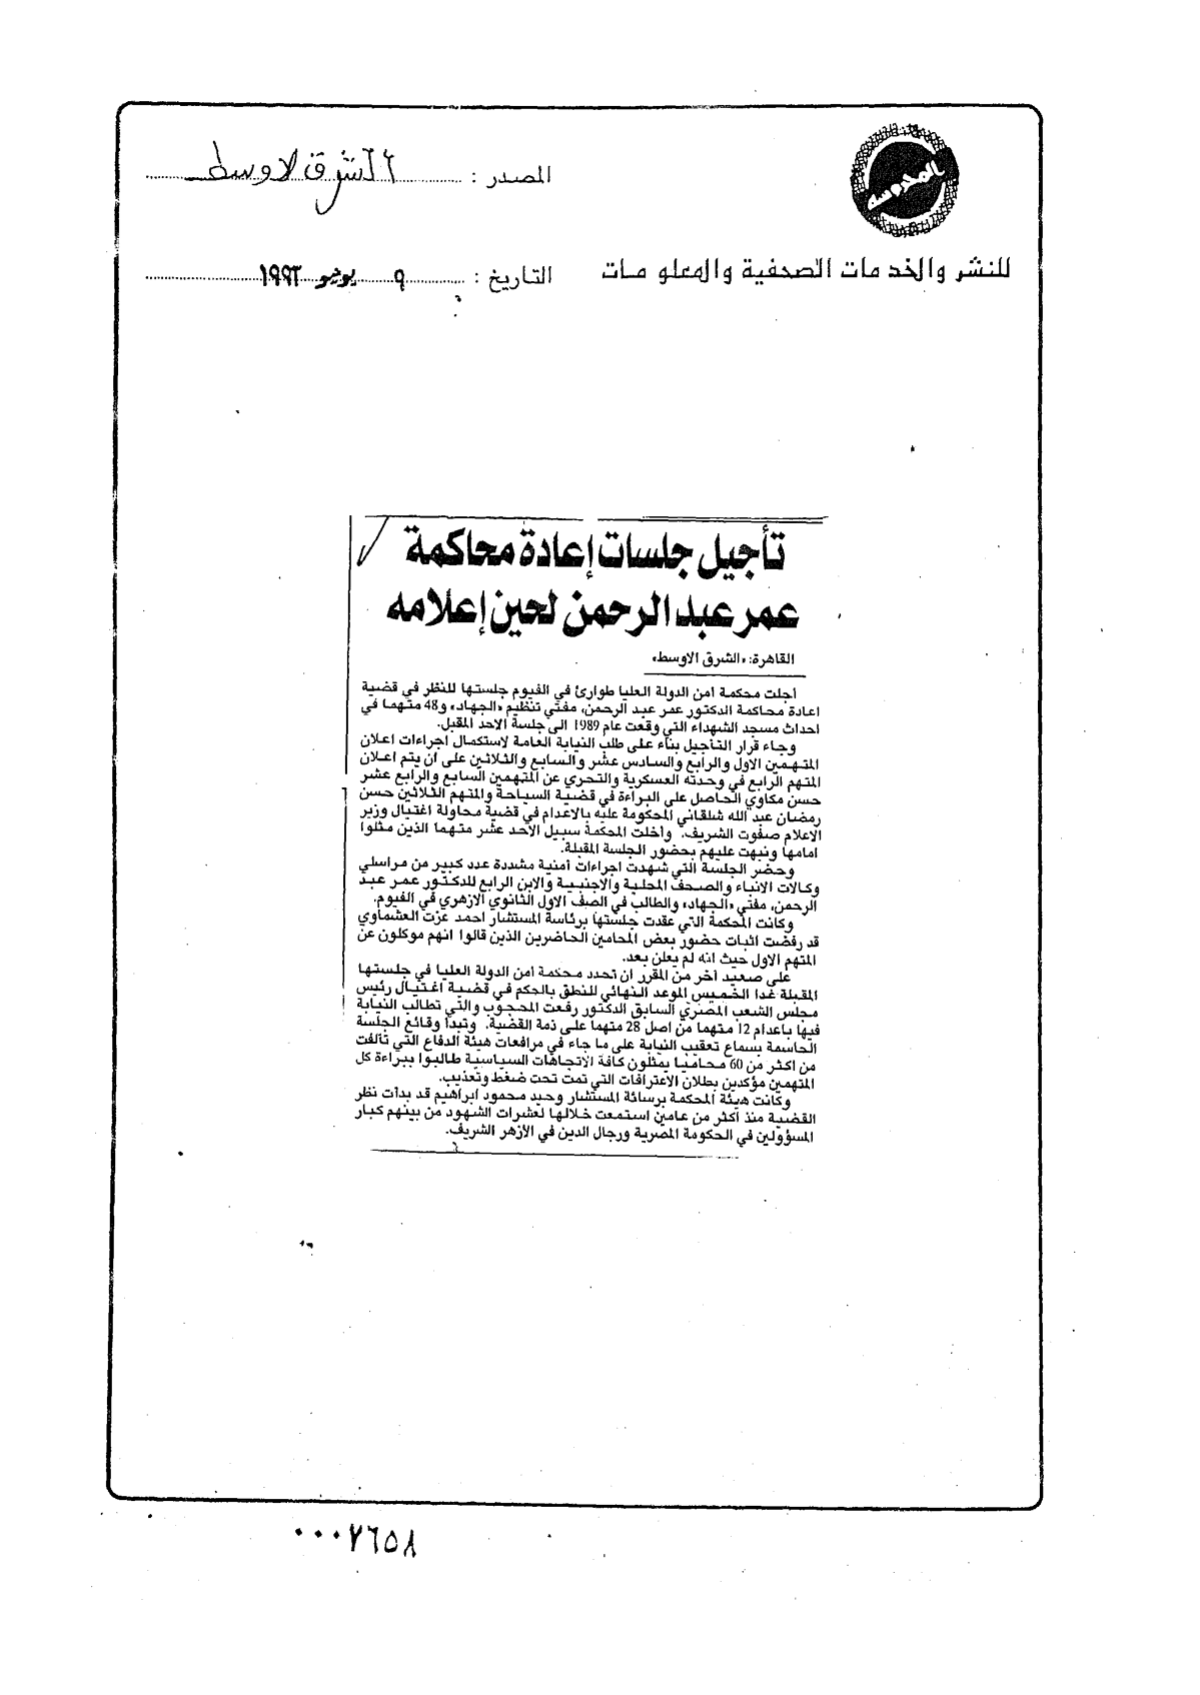 المحروسة
المصدر : الشرق الاوسط
للنشر والخدمات الصحفية والمعلومات
التاريخ : ٩ يونيو ١٩٩٣
تأجيل جلسات إعادة محاكمة
عمر عبد الرحمن لحين إعلامه
القاهرة: «الشرق الاوسط»
اجلت محكمة امن الدولة العليا طوارئ في الفيوم جلستها للنظر في قضية
اعادة محاكمة الدكتور عمر عبد الرحمن، مفتي تنظيم «الجهاد» و48 متهما في
احداث مسجد الشهداء التي وقعت عام 1989 الى جلسة الاحد المقبل.
وجاء قرار التأجيل بناء على طلب النيابة العامة لاستكمال اجراءات اعلان
المتهمين الاول والرابع والسادس عشر والسابع والثلاثين على ان يتم اعلان
المتهم الرابع في وحدته العسكرية والتحري عن المتهمين السابع والرابع عشر
حسن مكاوي الحاصل على البراءة في قضية السياحة والمتهم الثلاثين حسن
رمضان عبد الله شلقاني المحكومة عليه بالاعدام في قضية محاولة اغتيال وزير
الاعلام صفوت الشريف. وأخلت المحكمة سبيل الاحد عشر متهما الذين مثلوا
امامها ونبهت عليهم بحضور الجلسة المقبلة.
وحضر الجلسة التي شهدت اجراءات أمنية مشددة عدد كبير من مراسلي
وكالات الانباء والصحف المحلية والاجنبية والابن الرابع للدكتور عمر عبد
الرحمن، مفتي «الجهاد» والطالب في الصف الاول الثانوي الازهري في الفيوم.
وكانت المحكمة التي عقدت جلستها برئاسة المستشار احمد عزت العشماوي
قد رفضت اثبات حضور بعض المحامين الحاضرين الذين قالوا انهم موكلون عن
المتهم الاول حيث انه لم يعلن بعد.
على صعيد آخر من المقرر ان تحدد محكمة امن الدولة العليا في جلستها
المقبلة غدا الخميس الموعد النهائي للنطق بالحكم في قضية اغتيال رئيس
مجلس الشعب المصري السابق الدكتور رفعت المحجوب والتي تطالب النيابة
فيها باعدام 12 متهما من اصل 28 متهما على ذمة القضية. وتبدأ وقائع الجلسة
الحاسمة بسماع تعقيب النيابة على ما جاء في مرافعات هيئة الدفاع التي تألفت
من اكثر من 60 محاميا يمثلون كافة الاتجاهات السياسية طالبوا ببراءة كل
المتهمين مؤكدين بطلان الاعترافات التي تمت تحت ضغط وتعذيب.
وكانت هيئة المحكمة برسائة المستشار وحيد محمود ابراهيم قد بدأت نظر
القضية منذ اكثر من عامين استمعت خلالها لعشرات الشهود من بينهم كبار
المسؤولين في الحكومة المصرية ورجال الدين في الازهر الشريف.
٠٠٠٧٦٥٨